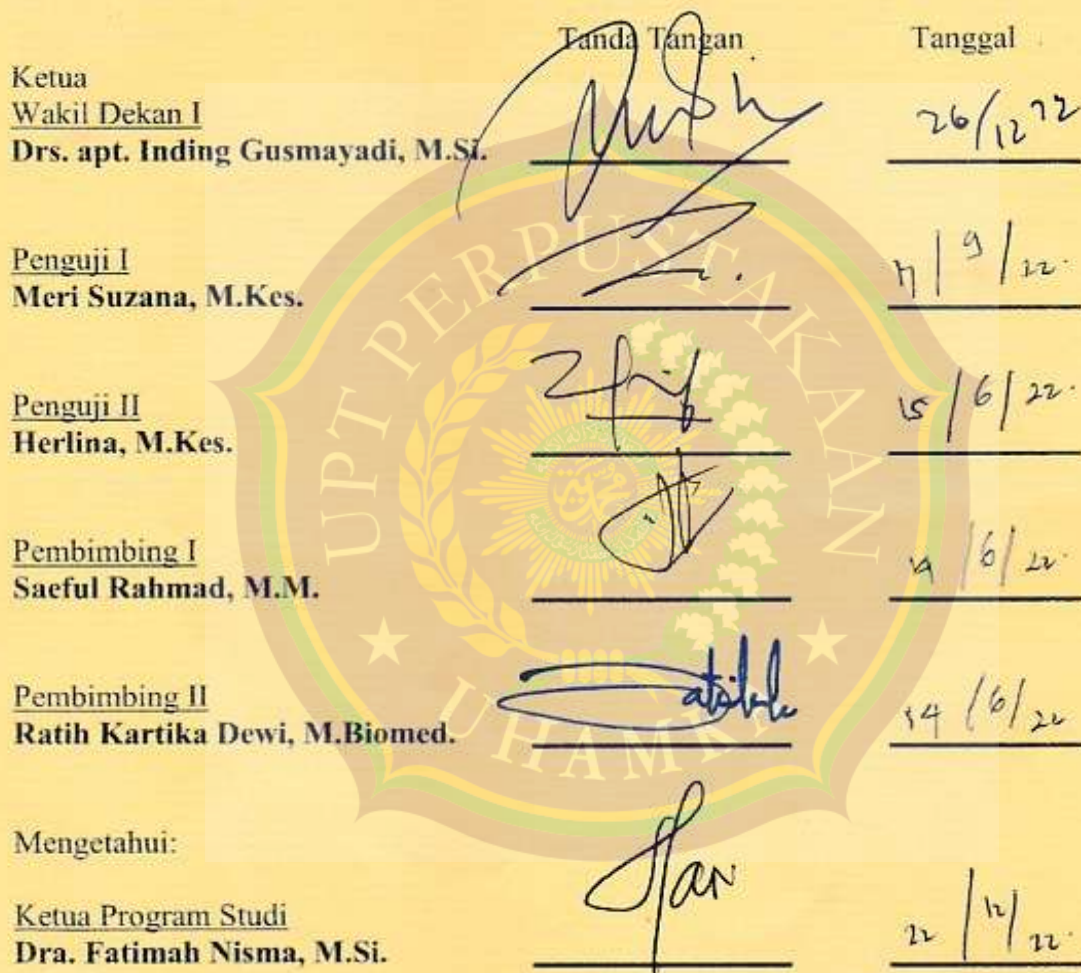 Tanda Tangan Tanggal
Ketua
Wakil Dekan I
Drs. apt. Inding Gusmayadi, M.Si. 26/12 22
Penguji I
Meri Suzana, M.Kes. /9/22.
Penguji II
Herlina, M.Kes. 15/6/22.
Pembimbing I
Saeful Rahmad, M.M. /6/22.
Pembimbing II
Ratih Kartika Dewi, M.Biomed. 14/6/22
Mengetahui:
Ketua Program Studi
Dra. Fatimah Nisma, M.Si. 22/12/22.
UPT PERPUSTAKAAN
UHAMKA